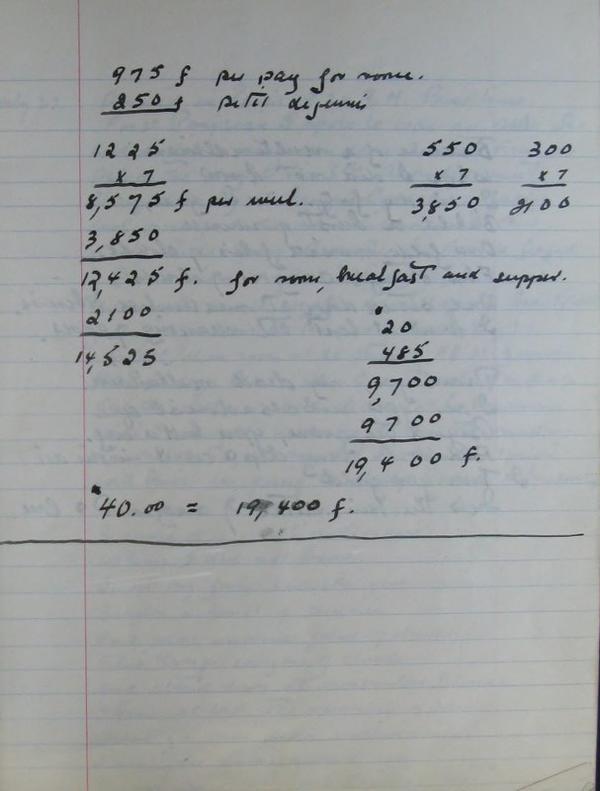 975 f per pay for room.
250 f petit dejeuni
1225 550 300
x 7 x 7 x 7
8,575 f per week. 3,850 2100
3,850
12,425 f. for room, breakfast and supper.
2100 20
14,525 485
9,700
9700
19,400 f.
40.00 = 19,400 f.